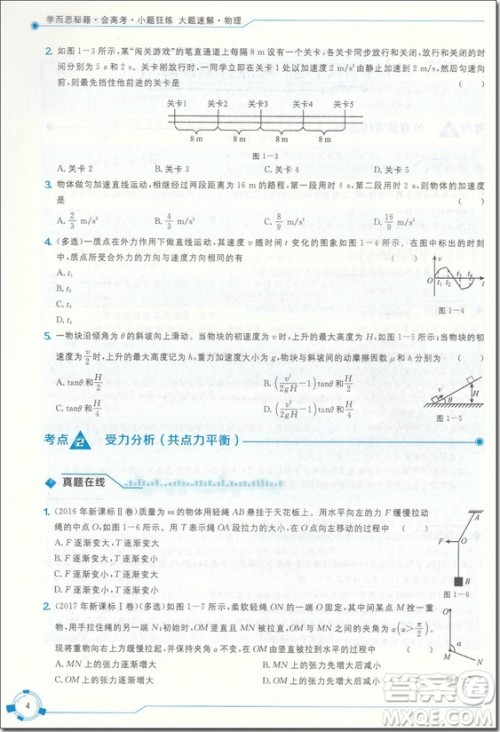 学而思秘籍·会高考·小题狂练 大题速解·物理
2. 如图1-3所示,某“闯关游戏”的笔直通道上每隔8 m设有一个关卡,各关卡同步放行和关闭,放行和关闭的时间
间分别为5 s和2 s.关卡刚放行时,一同学立即在关卡1处以加速度2 m/s²由静止加速到2 m/s,然后匀速向
前,则最先挡住他前进的关卡是 ( )
关卡1 关卡2 关卡3 关卡4 关卡5
8 m 8 m 8 m 8 m
图1-3
A. 关卡2 B. 关卡3 C. 关卡4 D. 关卡5
3. 物体做匀加速直线运动,相继经过两段距离为16 m的路程,第一段用时4 s,第二段用时2 s,则物体的加速度是
( )
A. 2/3 m/s² B. 4/3 m/s² C. 8/9 m/s² D. 16/9 m/s²
4. (多选)一质点在外力作用下做直线运动,其速度v随时间t变化的图象如图1-4所示.在图中标出的时刻
中,质点所受合外力的方向与速度方向相同的有 ( )
A. t₁
B. t₂
C. t₃
D. t₄
v
O t₁ t₂ t₃ t₄ t
图1-4
5. 一物块沿倾角为θ的斜坡向上滑动.当物块的初速度为v时,上升的最大高度为H,如图1-5所示;当物块的初
速度为v/2时,上升的最大高度记为h,重力加速度大小为g.物块与斜坡间的动摩擦因数μ和h分别为 ( )
A. tanθ和H/2 B. (v²/2gH-1)tanθ和H/2
C. tanθ和H/4 D. (v²/2gH-1)tanθ和H/4
v
H
θ
图1-5
考点 2 受力分析(共点力平衡)
真题在线
1. (2016年新课标Ⅱ卷)质量为m的物体用轻绳AB悬挂于天花板上.用水平向左的力F缓慢拉动
绳的中点O,如图1-6所示.用T表示绳OA段拉力的大小,在O点向左移动的过程中 ( )
A. F逐渐变大,T逐渐变大
B. F逐渐变大,T逐渐变小
C. F逐渐变小,T逐渐变大
D. F逐渐变小,T逐渐变小
A
F O
B
图1-6
2. (2017年新课标Ⅰ卷)(多选)如图1-7所示,柔软轻绳ON的一端O固定,其中间某点M拴一重
物,用手拉住绳的另一端N,初始时,OM竖直且MN被拉直,OM与MN之间的夹角为α(α>π/2).现将
重物向右上方缓慢拉起,并保持夹角α不变.在OM由竖直被拉到水平的过程中 ( )
A. MN上的张力逐渐增大
B. MN上的张力先增大后减小
C. OM上的张力逐渐增大
D. OM上的张力先增大后减小
O
M α
N
4
答案圈
MXQE.COM